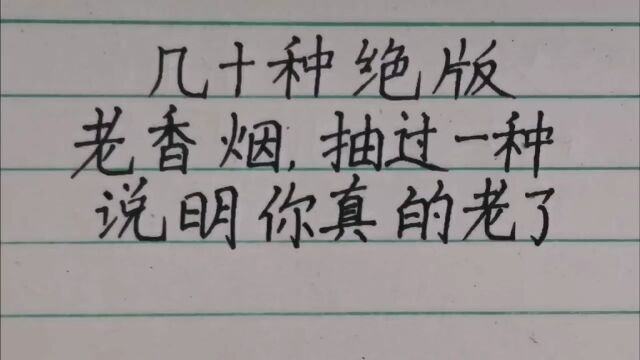 几十种绝版
老香烟,抽过一种
说明你真的老了